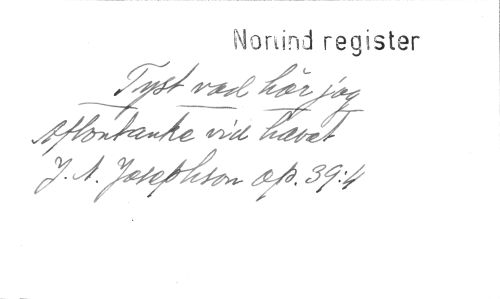 Norlind register
Tyst vad hör jag
Aftontanke vid havet
J. A. Josephson op. 39:4